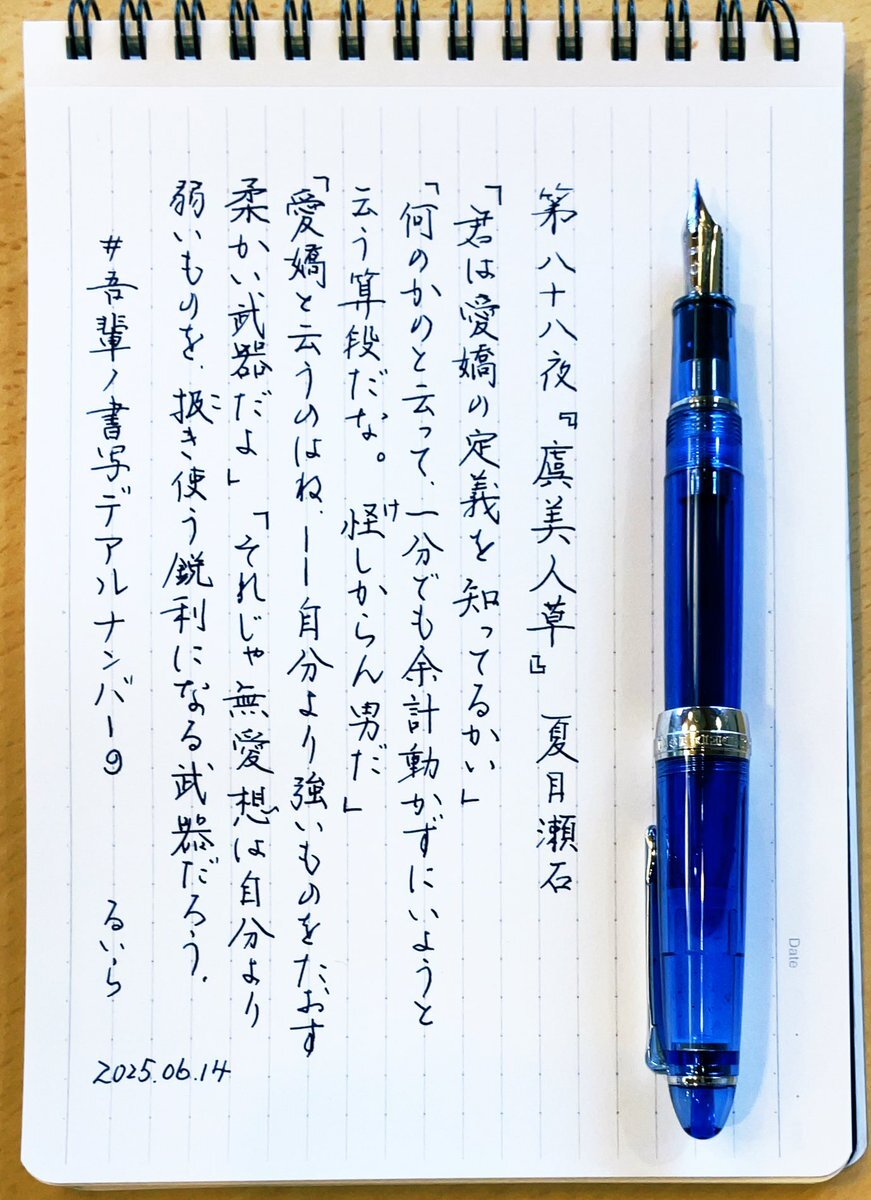 第八十八夜『虞美人草』 夏目瀬石
「君は愛嬌の定義を知ってるかい」
「何のかのと云って、一分でも余計動かずにいようと
云う算段だな。怪しからん男だ」
「愛嬌と云うのはね、――自分より強いものをたおす
柔かい武器だよ」「それじゃ無愛想は自分より
弱いものを、扱き使う鋭利になる武器だろう、
#吾輩ノ書写デアルナンバー9
るいら
2025.06.14
Date